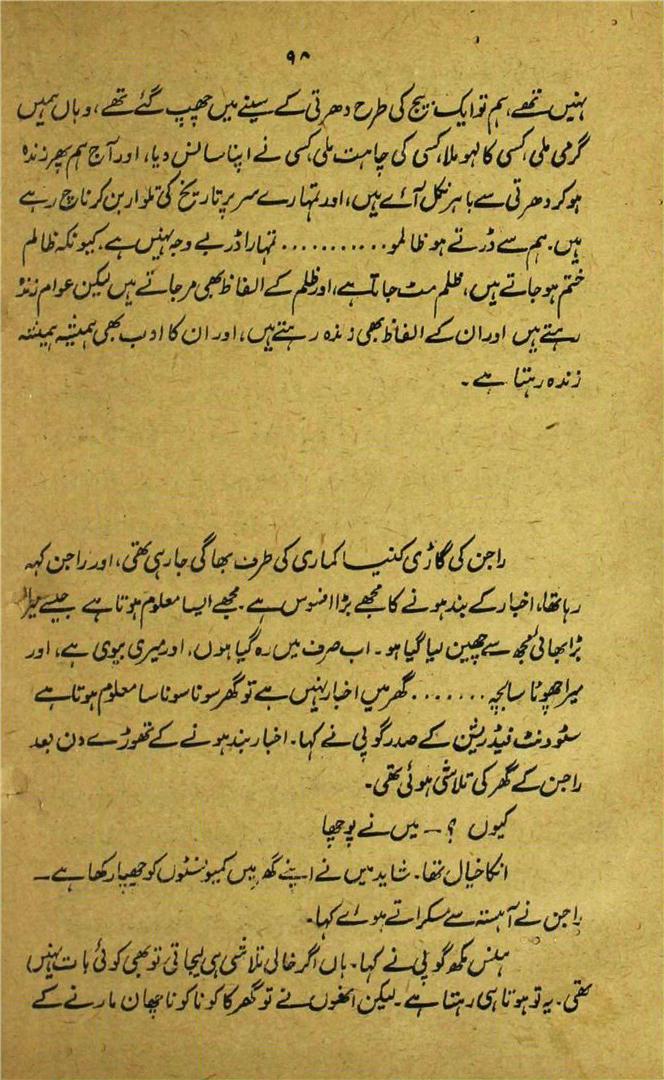 ۹۸
نہیں تھے، ہم تو ایک بیج کی طرح دھرتی کے سینے میں چھپ گئے تھے، وہاں ہمیں
گرمی ملی، کسی کا لہو ملا، کسی کی چاہت ملی، کسی نے اپنا سانس دیا، اور آج ہم پھر زندہ
ہو کر دھرتی سے باہر نکل آئے ہیں، اور تمہارے سر پر تاریخ کی تلوار بن کر ناچ رہے
ہیں. ہم سے ڈرتے ہو ظالمو........... تمہارا ڈر بے وجہ نہیں ہے. کیونکہ ظالم
ختم ہو جاتے ہیں، ظلم مٹ جاتا ہے، اور ظلم کے الفاظ بھی مر جاتے ہیں لیکن عوام زندہ
رہتے ہیں اور ان کے الفاظ بھی زندہ رہتے ہیں، اور ان کا ادب بھی ہمیشہ ہمیشہ
زندہ رہتا ہے۔
راجن کی گاڑی کنیا کماری کی طرف بھاگی جا رہی تھی، اور راجن کہہ
رہا تھا، اخبار کے بند ہونے کا مجھے بڑا افسوس ہے. مجھے ایسا معلوم ہوتا ہے جیسے میرا
بڑا بھائی مجھ سے چھین لیا گیا ہو۔ اب صرف میں رہ گیا ہوں، اور میری بیوی ہے، اور
میرا چھوٹا سا بچہ ....... گھر میں اخبار نہیں ہے تو گھر سونا سونا سا معلوم ہوتا ہے
سٹوڈنٹ فیڈریشن کے صدر گوپی نے کہا۔ اخبار بند ہونے کے تھوڑے دن بعد
راجن کے گھر کی تلاشی ہوئی تھی۔
کیوں ؟ ۔ میں نے پوچھا
انکا خیال تھا۔ شاید میں نے اپنے گھر میں کمیونسٹوں کو چھپا رکھا ہے۔
راجن نے آہستہ سے مسکراتے ہوئے کہا۔
ہنس مکھ گوپی نے کہا۔ ہاں اگر خالی تلاشی ہی لیجاتی تو بھی کوئی بات نہیں
تھی۔ یہ تو ہوتا ہی رہتا ہے۔ لیکن انھوں نے تو گھر کا کونا کونا چھان مارنے کے